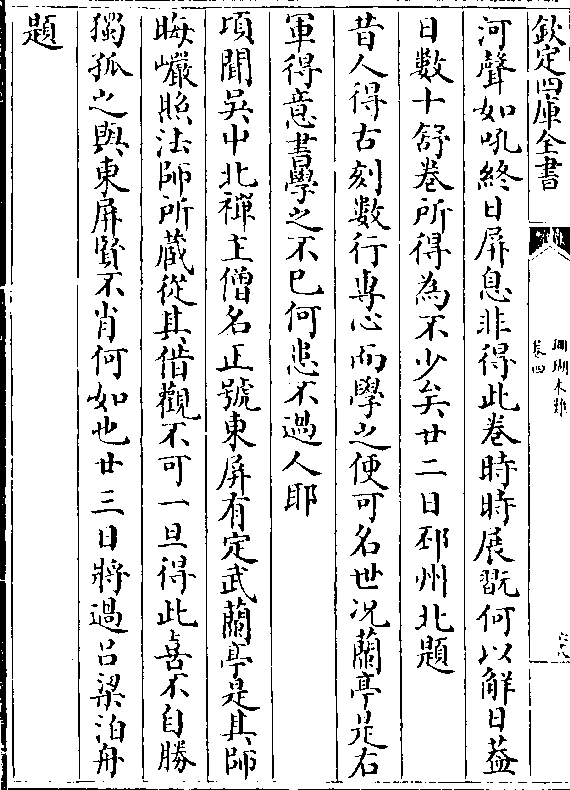 欽定四庫全書
珊瑚木難
卷四
河聲如吼終日屏息非得此卷時時展翫何以解日蓋
日數十舒卷所得為不少矣廿二日邳州北題
昔人得古刻數行専心而學之便可名世况蘭亭是右
軍得意書學之不已何患不過人耶
頃聞吳中北禪主僧名正號東屏有定武蘭亭是其師
晦巖照法師所藏從其借觀不可一旦得此喜不自勝
獨孤之與東屏賢不肖何如也廿三日將過吕梁泊舟
題